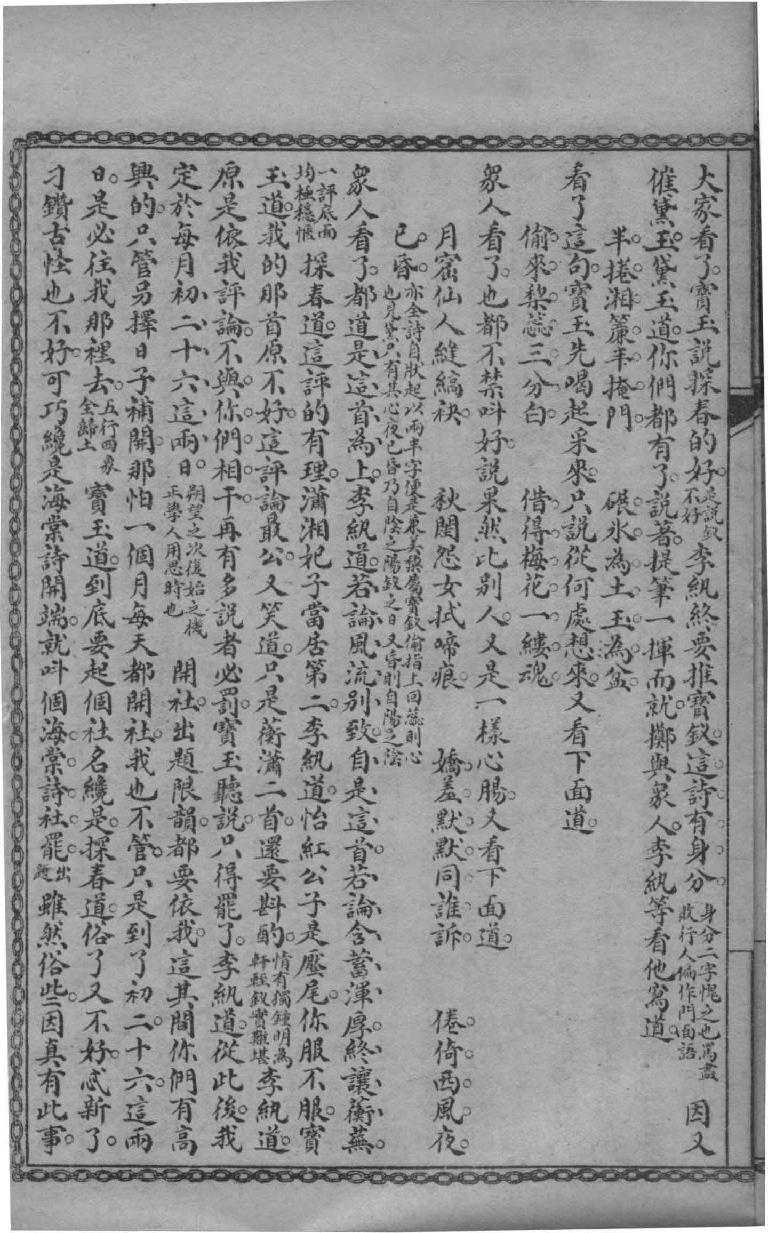 大家看了。寶玉說探春的好。是說釵不好李紈終要推寶釵。這詩有身分。身分二字愧之也罵盡敗行人偏作門面語因又
催黛玉。黛玉道。你們都有了。說著提筆一揮而就。擲與眾人。李紈等看他寫道。
半捲湘簾半掩門　碾氷為土玉為盆
看了這句。寶玉先喝起采來。只說從何處想來。又看下面道。
偷來梨蕊三分白　借得梅花一縷魂
眾人看了。也都不禁呌好。說果然比別人。又是一樣心腸。又看下面道。
月窟仙人縫縞袂　秋閨怨女拭啼痕　嬌羞默默同誰訴　倦倚西風夜
已昏亦全詩自狀起以兩半字便是兼美釵屬寶釵偷指上回蕊則心也見黛只有其心夜已昏乃自陰之陽釵之日又昏則自陽之陰
眾人看了。都道是這首為上。李紈道。若論風流別致。自是這首。若論含蓄渾厚。終讓蘅蕪。
一評底面均極穩愜探春道。這評的有理。瀟湘妃子當居第二。李紈道。怡紅公子是壓尾。你服不服。寶
玉道。我的那首原不好。這評論最公。又笑道。只是蘅瀟二首。還要斟酌。情有獨鍾明為軒輊釵實難堪李紈道。
原是依我評論。不與你們相干。再有多說者必罰。寶玉聽說。只得罷了。李紈道。從此後。我
定於每月初二十六這兩日。朔望之次復始之機正學人用思時也開社。出題限韻。都要依我。這其間你們有高
興的。只管另擇日子補開。那怕一個月每天都開社。我也不管。只是到了初二十六這兩
日。是必往我那裡去。五行四象全歸土寶玉道。到底要起個社名纔是。探春道。俗了又不好。忒新了。
刁鑽古怪也不好。可巧纔是海棠詩開端。就呌個海棠詩社罷。出題雖然俗些。因真有此事。